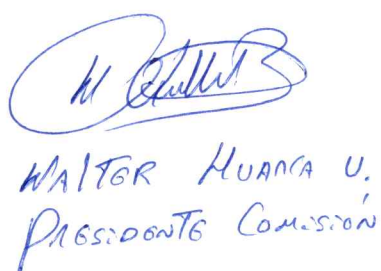 WALTER HUANCA U.
PRESIDENTE COMISIÓN